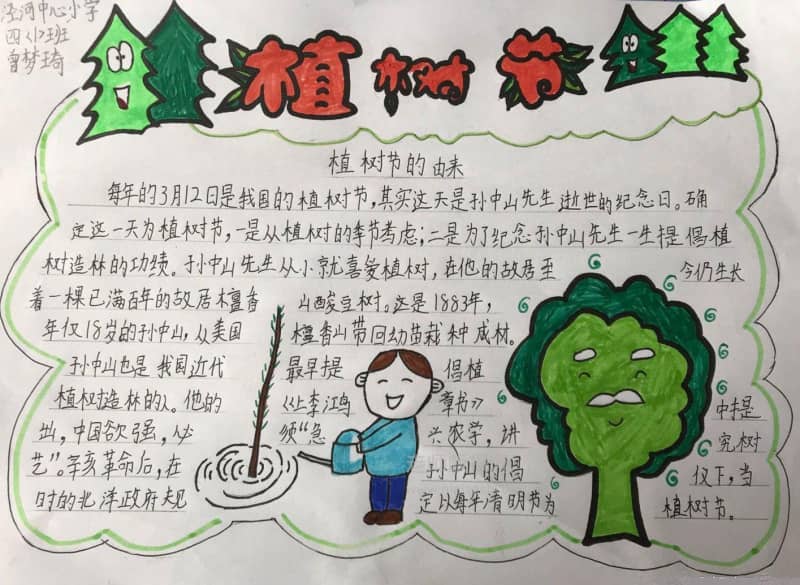 泾河中心小学
四〈1〉班
曾梦琦
植树节
植树节的由来
每年的3月12日是我国的植树节,其实这天是孙中山先生逝世的纪念日。确
定这一天为植树节,一是从植树的季节考虑;二是为了纪念孙中山先生一生提倡植
树造林的功绩。孙中山先生从小就喜爱植树,在他的故居至今仍生长
着一棵已满百年的故居檀香山酸豆树。这是1883年,
年仅18岁的孙中山,从美国檀香山带回幼苗栽种成材。
孙中山也是我国近代最早提倡植
植树造林的人。他的《上李鸿章书》中提
出,中国欲强,必须“急兴农学,讲究树
艺”。辛亥革命后,在孙中山的倡仪下,当
时的北洋政府规定以每年清明节为植树节。